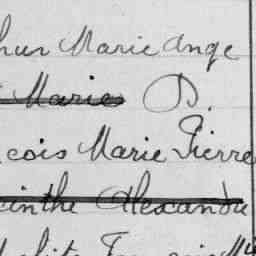 hur Marie Ange
Marie D.
cois Marie Pierre
cinthe Alexandre